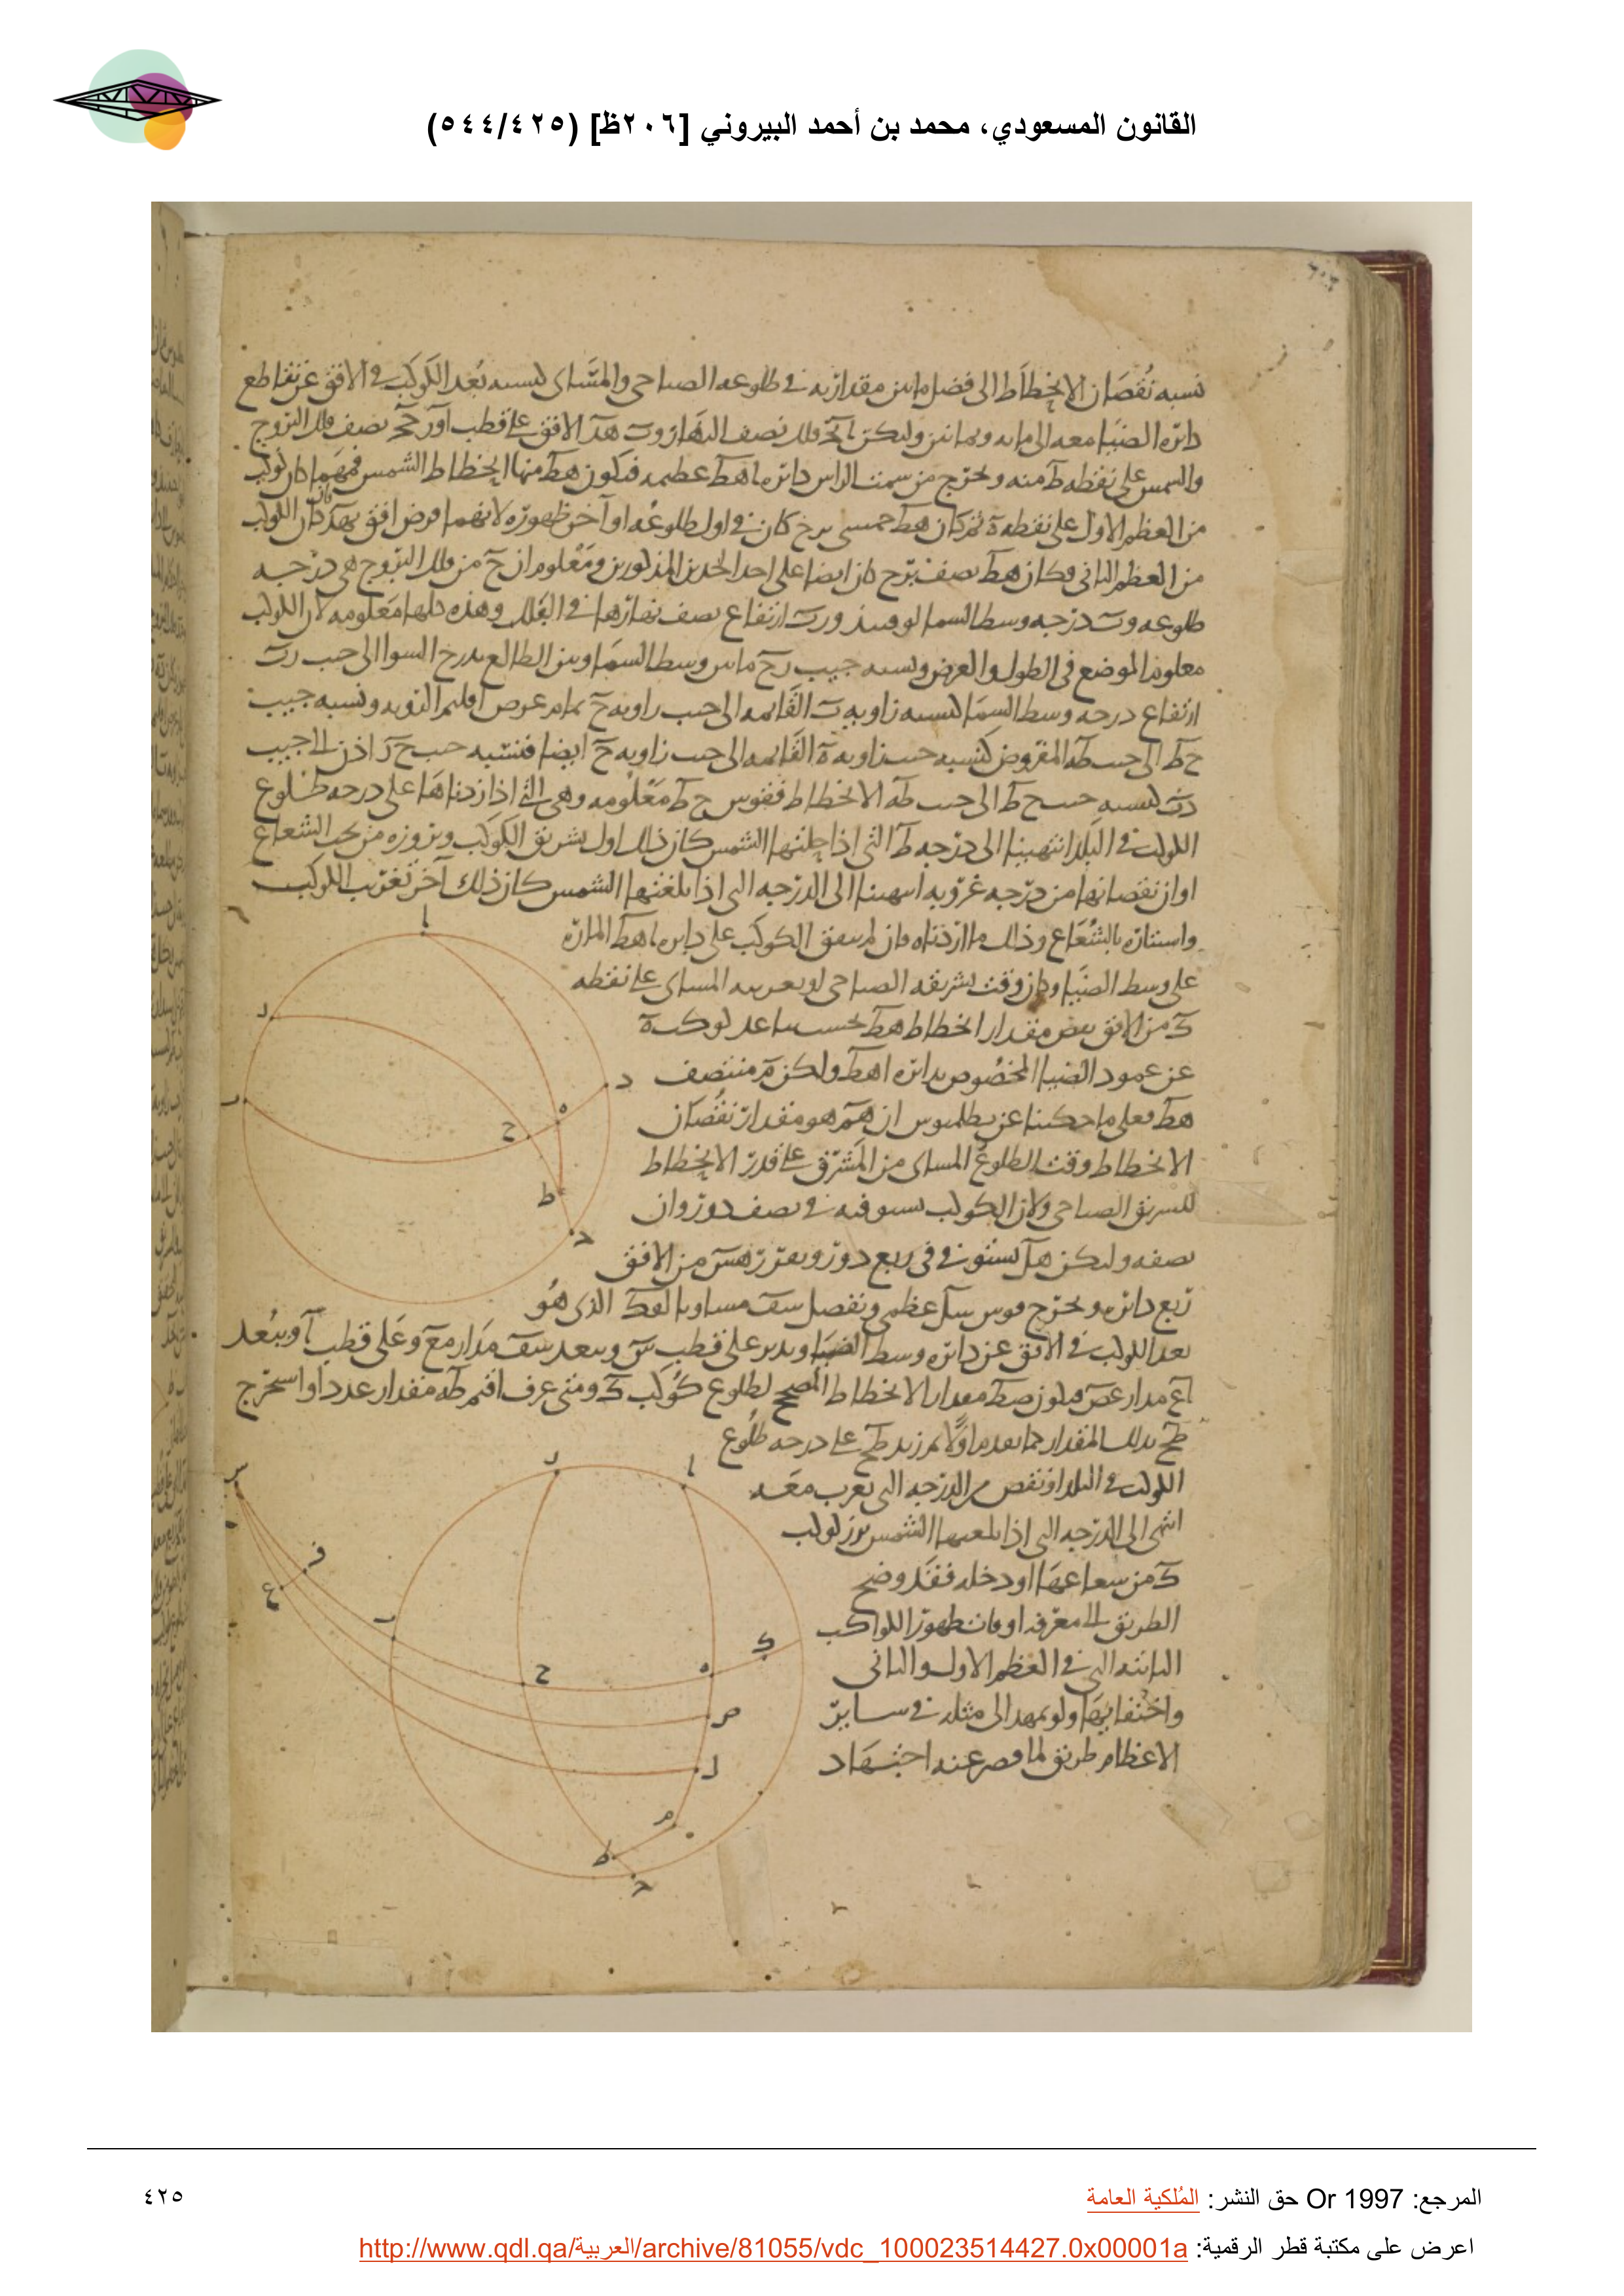 القانون المسعودي، محمد بن أحمد البيروني [٢٠٦ظ] (٥٤٤/٤٢٥)
نسبه نقصان الانحطاط الى فضل ما بين مقداريه في طلوعه الصباحى والمسائى كنسبه بُعد الكوكب فى الافق عن تقاطع
دائره الضيا معه الى مايه وثمانين وليكن فلك نصف النهار و هد الافق على قطب نصف فلك البروج
والشمس على نقطه ط منه ونخرج من سمت الراس دائره اهط عظيمه فيكون هط منها انحطاط الشمس فمهما كان كوكب
من العظم الاول على نقطه ه ثم كان هط كان في اول طلوعه او آخر ظهوره لانهما فرض افق
من العظم الثانى وكان هط نصف برج كان ايضا على احد الحدين المذكورين ومعلوم ان ح من فلك البروج هى درجه
طلوعه و درجه وسط السما ارتفاع نصف نهارها فى الفلك وهذه كلها معلومه لان الكوكب
معلوم الموضع فى الطول والعرض ونسبه جيب رح ما بين وسط السما وبين الطالع بدرج السوا الى جيب رب
ارتفاع درجه وسط السما كنسبه زاويه ب القائمه الى جيب زاويه ح تمام عرض اقليم الرويه ونسبه جيب
ح ط الى جيب طه المفروض كنسبه جيب زاويه ه القائمه الى جيب زاويه ح ايضا فنسبه جيب ح ر اذن الى جيب
رب كنسبه جيب ح ط الى جيب طه الانحطاط فقوس ح ط معلومه وهى التى اذا زدناها على درجه طلوع
الكوكب فى البلد انتهينا الى درجه ط التى اذا حلتها الشمس كان ذلك اول تشريق الكوكب وبروزه من تحت الشعاع
اوان نقصانها من درجه غروبه انتهينا الى الدرجه التى اذا بلغتها الشمس كان ذلك آخر تغريب الكوكب
واستتاره بالشعاع وذلك ما اردناه وان لم يتفق الكوكب على دايره اهط الماره
على وسط الضيا وكان وقت تشريقه الصباحى او تغريبه المسائى على نقطه
ك من الافق نقص مقدار انحطاط هط بحسب تباعد كوكب
عن عمود الضيا المخصوص بدائره اهط وليكن م منتصف
هط فعلى ما حكينا عن بطلميوس ان هم هو مقدار نقصان
الانحطاط وقت الطلوع المسائى من المشرق على قدر الانحطاط
للتشريق الصباحى ولان الكوكب يستوفيه فى نصف دور وان
نصفه وليكن هل يستوفى فى ربع دور ونفرز هس من الافق
ربع دائره ونخرج قوس سل عظمى ونفصل سف مساويا الذى هو
بعد الكوكب فى الافق عن دائره وسط الضيا وندير على قطب س وببعد سف مدار فع وعلى قطب آ وببعد
اع مدار عص فيكون صط مقدار الانحطاط المصحح لطلوع كوكب ك ومتى عرف اقيم طه مقدار عدد او استخرج
طح بذلك المقدار كما تقدم اولا ثم زيد طح على درجه طلوع
الكوكب فى البلد او نقص من الدرجه التى يغرب معه
انتهى الى الدرجه التى اذا بلغتها الشمس برز كوكب
ك من شعاعها او دخله فقد وضح
الطريق الى معرفه اوقات ظهور الكواكب
الثابته التى فى العظم الاول والثانى
واختفائها ولو تمهد الى مثله فى سائر
الاعظام طريق لما قصر عنه اجتهاد
ا
ر
د
ب
ه
ح
ط
ج
ر
ا
س
ف
ع
ب
ك
ح
ه
ص
ل
م
ط
ج
المرجع: Or 1997 حق النشر: المُلكية العامة
٤٢٥
اعرض على مكتبة قطر الرقمية: http://www.qdl.qa/العربية/archive/81055/vdc_100023514427.0x00001a